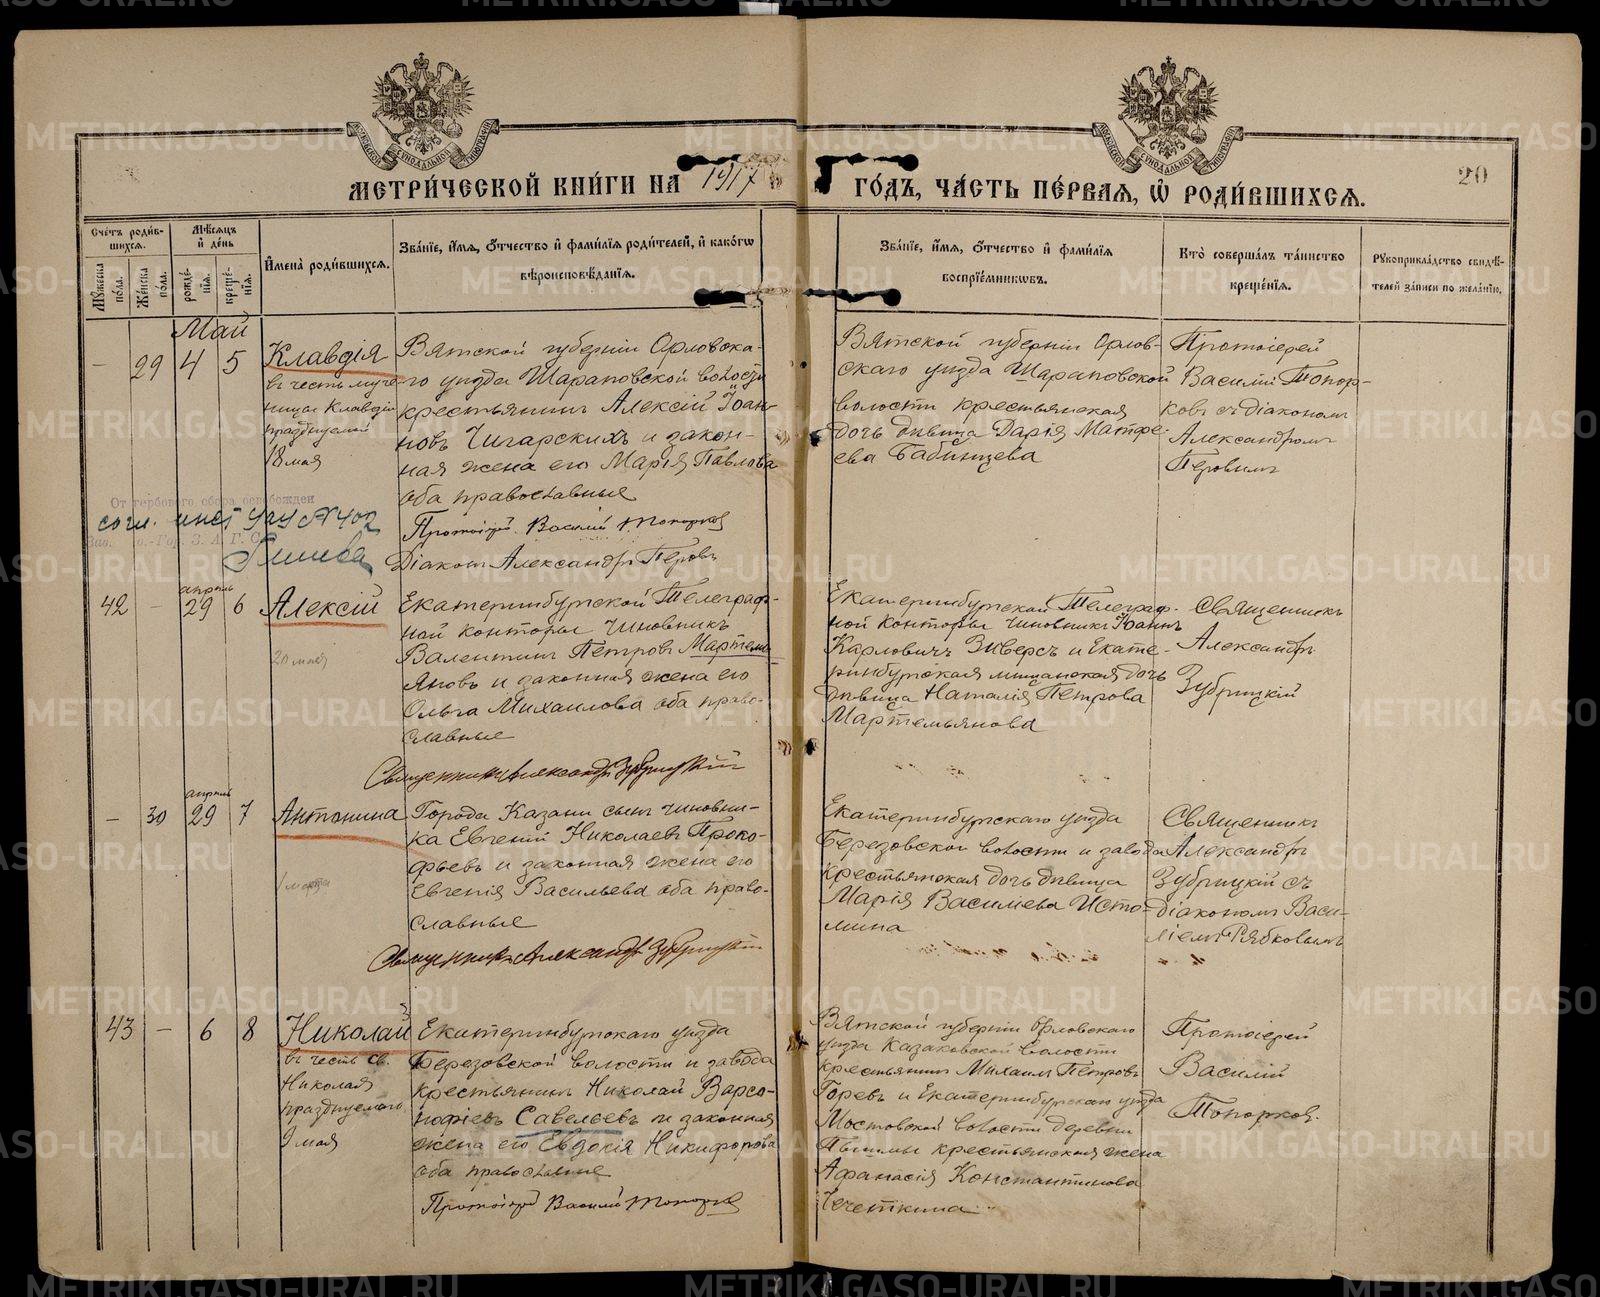 МЕТРИ́ЧЕСКОЙ КНИ́ГИ НА 1917 ГО́ДЪ, ЧА́СТЬ ПЕ́РВАЯ, Ѡ РОДИ́ВШИХСЯ.
20
Сче́тъ роди́вшихся.
Му́жеска по́ла.
Же́нска по́ла.
Мѣ́сяцъ и де́нь
рожде́нія.
креще́нія.
И҆мена̀ роди́вшихся.
Зва́нїе, и҆́мѧ, ѻ҆́тчество и҆ фами́лїѧ роди́телей, и҆ како́гѡ вѣроисповѣ́данїѧ.
Зва́нїе, и҆́мѧ, ѻ҆́тчество и҆ фами́лїѧ воспрїе́мникѡвъ.
Кто̀ соверша́лъ та́инство креще́нїѧ.
Рукоприкла́дство свидѣ́телей за́писи по жела́нїю.
Май
— 29 4 5
Клавдія
въ честь муче-
ницы Клавдіи
празднуемой
18 мая
Вятской губерніи Орловска-
го уѣзда Шараповской волости
крестьянинъ Алексій Іоан-
новъ Чигарскихъ и закон-
ная жена его Марія Павлова
оба православные
Протоіерей Василій Топорковъ
Діаконъ Александръ Перовъ
Вятской губерніи Орлов-
скаго уѣзда Шараповской
волости крестьянская
дочь дѣвица Дарія Матфе-
ева Бабинцева
Протоіерей
Василій Топор-
ковъ съ діакономъ
Александромъ
Перовымъ
От гербового сбора освобожден
согл. инст. № 402
З. А. Г. С.
42 — апрѣль 29 6
Алексій
20 мая
Екатеринбургской Телеграф-
ной конторы чиновникъ
Валентинъ Петровъ Мартемь-
яновъ и законная жена его
Ольга Михаилова оба право-
славные
Священникъ Александръ Зубрицкій
Екатеринбургской Телеграф-
ной конторы чиновникъ Іоаннъ
Карловичъ Зиверсъ и Екате-
ринбургская мѣщанская дочь
дѣвица Наталія Петрова
Мартемьянова
Священникъ
Александръ
Зубрицкій
— 30 апрѣль 29 7
Антонина
1 марта
Города Казани сынъ чиновни-
ка Евгений Николаевъ Проко-
фьевъ и законная жена его
Евгенія Васильева оба право-
славные
Священникъ Александръ Зубрицкій
Екатеринбургскаго уѣзда
Березовской волости и завода
крестьянская дочь дѣвица
Марія Василіева Исто-
мина
Священникъ
Александръ
Зубрицкій съ
діакономъ Васи-
ліемъ Рябковымъ
43 — 6 8
Николай
въ честь св.
Николая
празднуемаго
9 мая
Екатеринбургскаго уѣзда
Березовской волости и завода
крестьянинъ Николай Варсо-
нофіевъ Савельевъ и законная
жена его Евдокія Никифорова
оба православные
Протоіерей Василій Топорковъ
Вятской губерніи Орловскаго
уѣзда Казаковской волости
крестьянинъ Михаилъ Петровъ
Горевъ и Екатеринбургскаго уѣзда
Мостовской волости деревни
крестьянская жена
Афанасія Константинова
Чечеткина
Протоіерей
Василій
Топорковъ.
METRIKI.GASO-URAL.RU